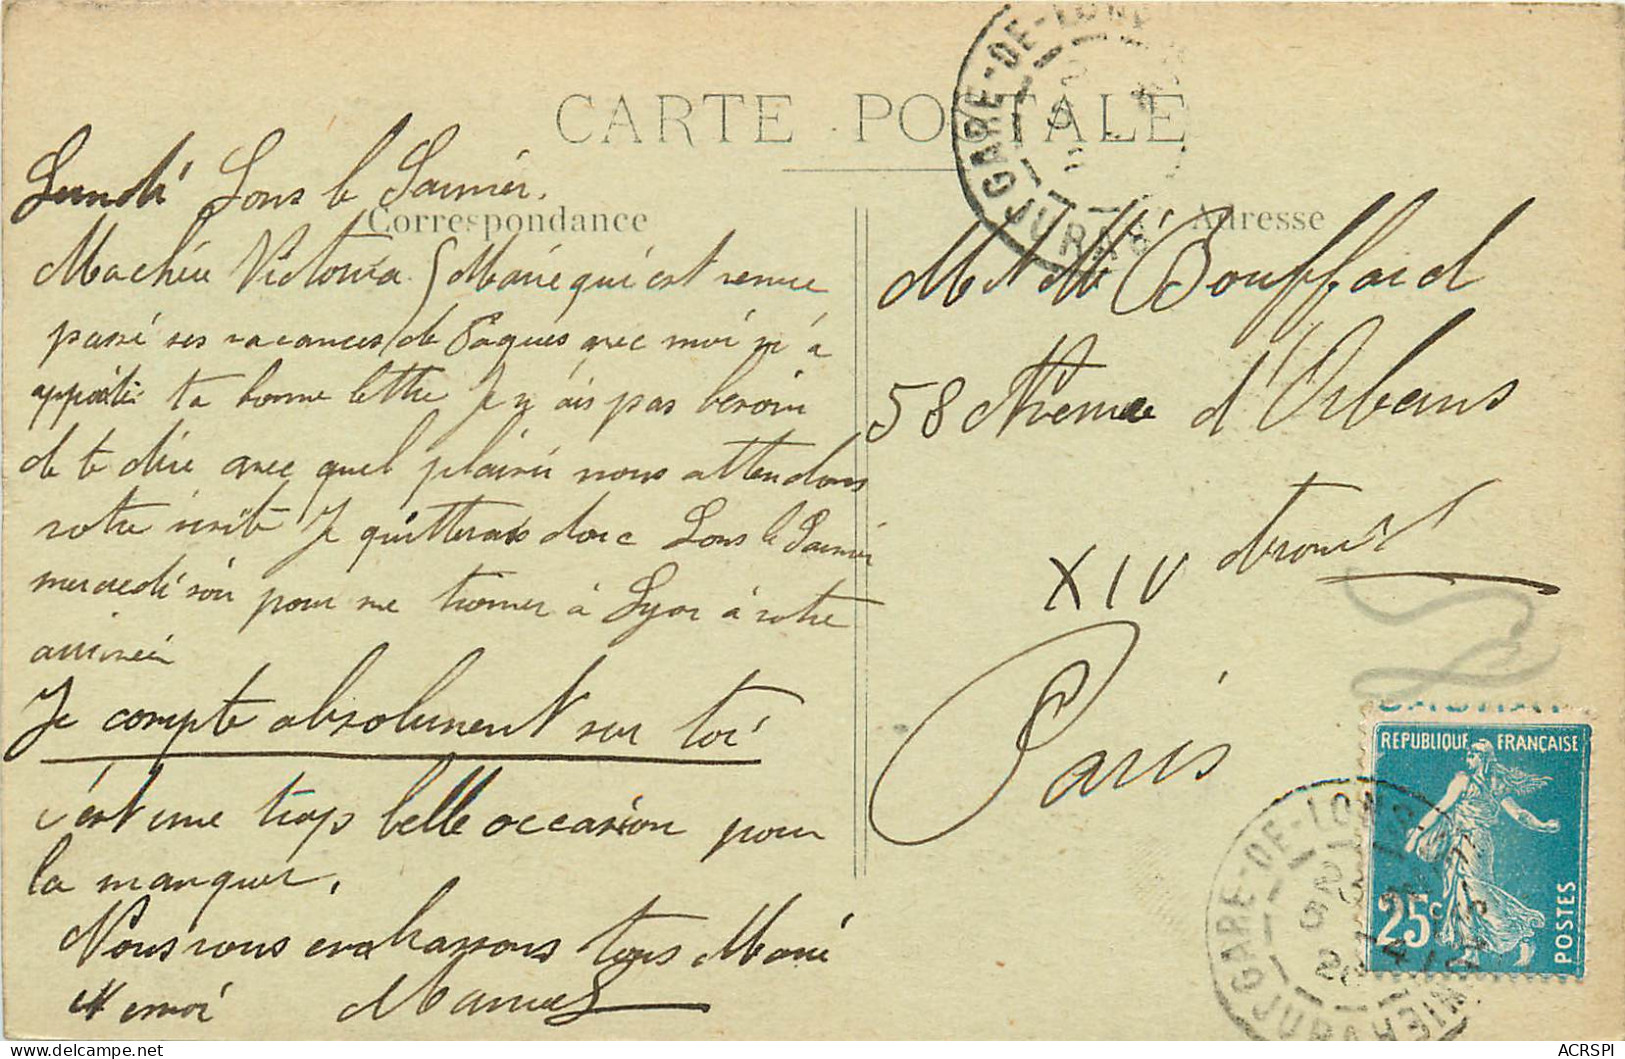 CARTE POSTALE
Correspondance
Adresse
Lundi Lons le Saunier.
Ma chère Victoria Marie qui est venue
passé ses vacances de Pâques avec moi m'a
apporté ta bonne lettre Je n'ais pas besoin
de te dire avec quel plaisir nous attendons
votre visite Je quitterais donc Lons le Saunier
mercredi soir pour me trouver à Lyon à votre
arrivée
Je compte absolument sur toi
c'est une trop belle occasion pour
la manquer.
Nous vous embrassons tous Marie
et moi
M et Mme Bouffard
58 Avenue d'Orléans
XIV
Paris
GARE-DE-LONS
JURA
REPUBLIQUE FRANÇAISE
25c
POSTES
GARE-DE-LONS-LE-SAUNIER
JURA
ACRSPI